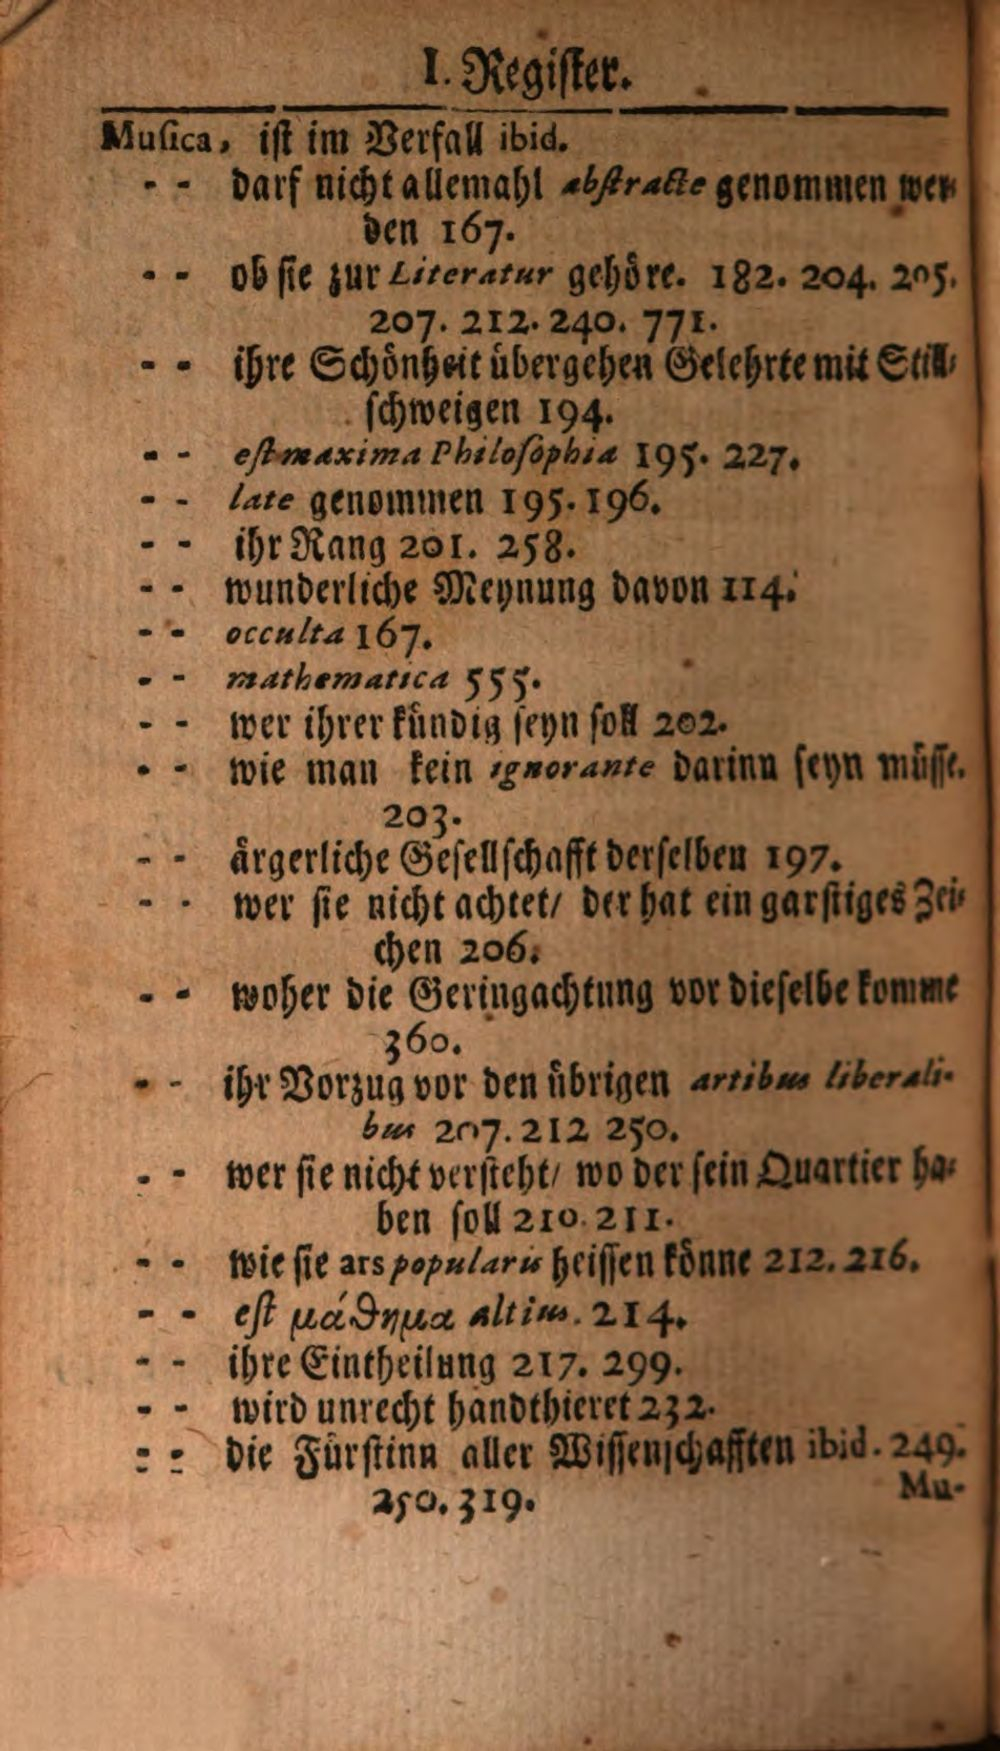 I. Regiſter.
Muſica, iſt im Verfall ibid.
- - darf nicht allemahl abſtracte genommen wer-
den 167.
- - ob ſie zur Literatur gehöre. 182. 204. 205.
207. 212. 240. 771.
- - ihre Schönheit übergehen Gelehrte mit Still-
ſchweigen 194.
- - eſt maxima Philoſophia 195. 227.
- - late genommen 195. 196.
- - ihr Rang 201. 258.
- - wunderliche Meynung davon 114.
- - occulta 167.
- - mathematica 555.
- - wer ihrer kündig ſeyn ſoll 202.
- - wie man kein ignorante darinn ſeyn müſſe.
203.
- - ärgerliche Geſellſchafft derſelben 197.
- - wer ſie nicht achtet/ der hat ein garſtiges Zei-
chen 206.
- - woher die Geringachtung vor dieſelbe komme
360.
- - ihr Vorzug vor den übrigen artibus liberali-
bus 207. 212 250.
- - wer ſie nicht verſteht/ wo der ſein Quartier ha-
ben ſoll 210. 211.
- - wie ſie ars popularis heiſſen könne 212. 216.
- - eſt μάθημα altius. 214.
- - ihre Eintheilung 217. 299.
- - wird unrecht handthieret 232.
- - die Fürſtinn aller Wiſſenſchafften ibid. 249.
250. 319.
Mu-